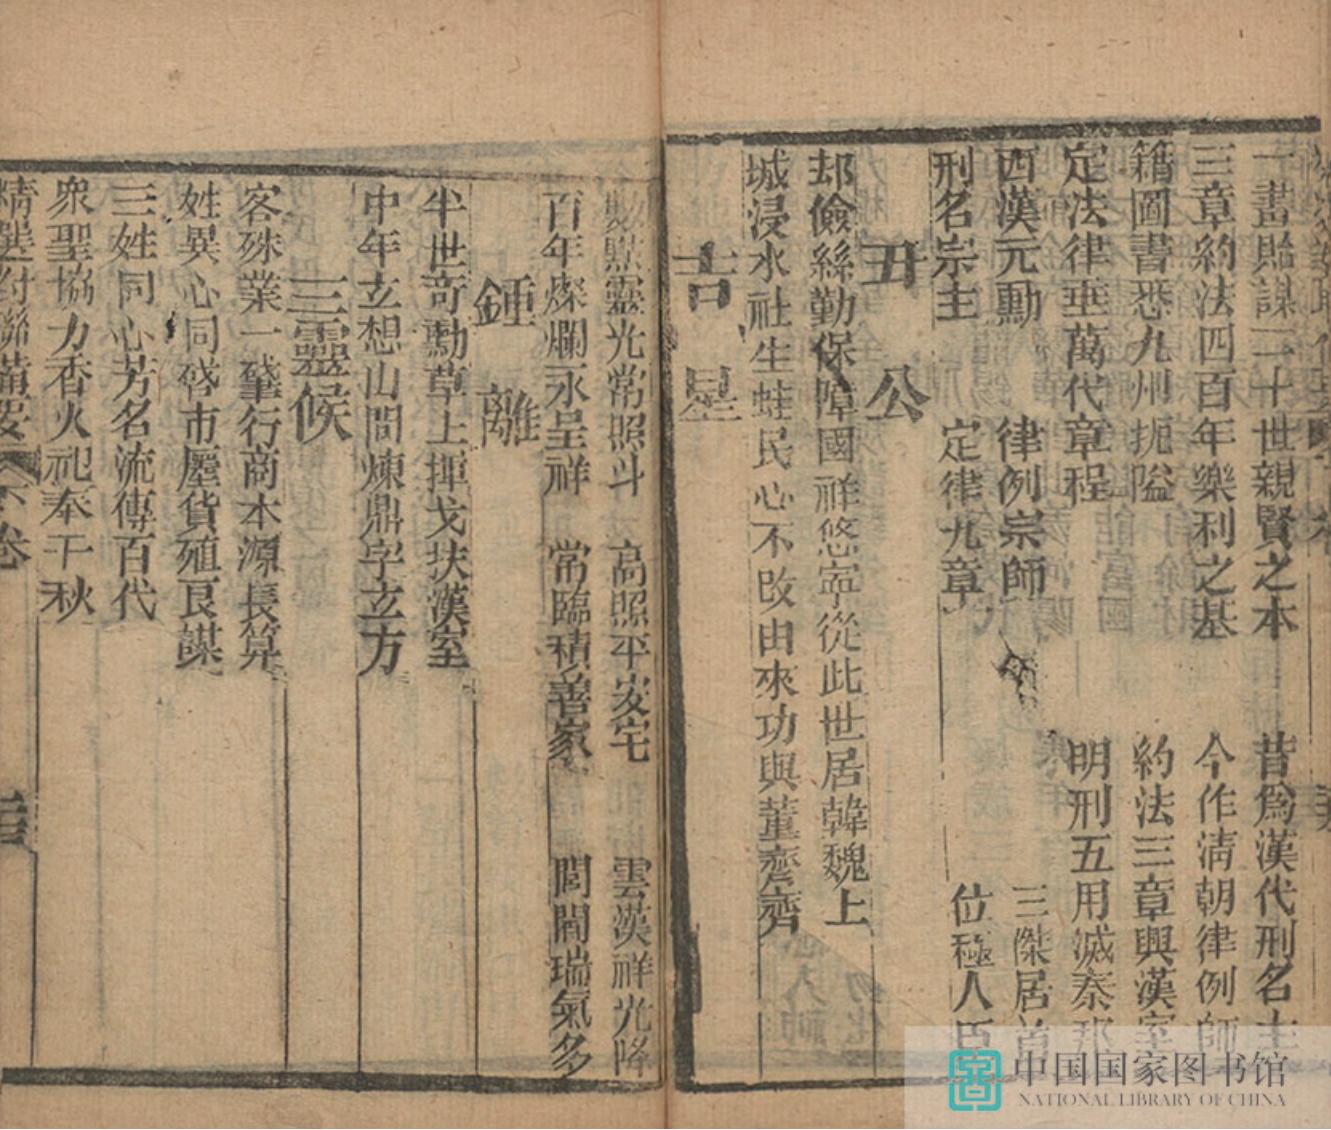 一畫貽謀二十世親賢之本　昔為漢代刑名主
三章約法四百年樂利之基　今作淸朝律例師
籍圖書悉九州扼隘　約法三章興漢室
定法律垂萬代章程　明刑五用滅秦邦
西漢元勳　律例宗師　三傑居首
刑名宗主　定律九章　位極人臣
丑公
却儉絲勤保障國祥悠寧從此世居韓魏上
城浸水社生蛙民心不改由來功與董齊齊
吉星
點靈光常照斗　高照平安宅　雲漢祥光降
百年燦爛永呈祥　常臨積善家　閭閻瑞氣多
鍾離
半世奇勳草上揮戈扶漢室
中年玄想山間煉鼎字玄方
三靈候
客殊業一肇行商本源長算
姓異心同啓市廛貨殖良謀
三姓同心芳名流傳百代
衆聖協力香火祀奉千秋
精選對聯備要　卷
中国国家图书馆
NATIONAL LIBRARY OF CHINA